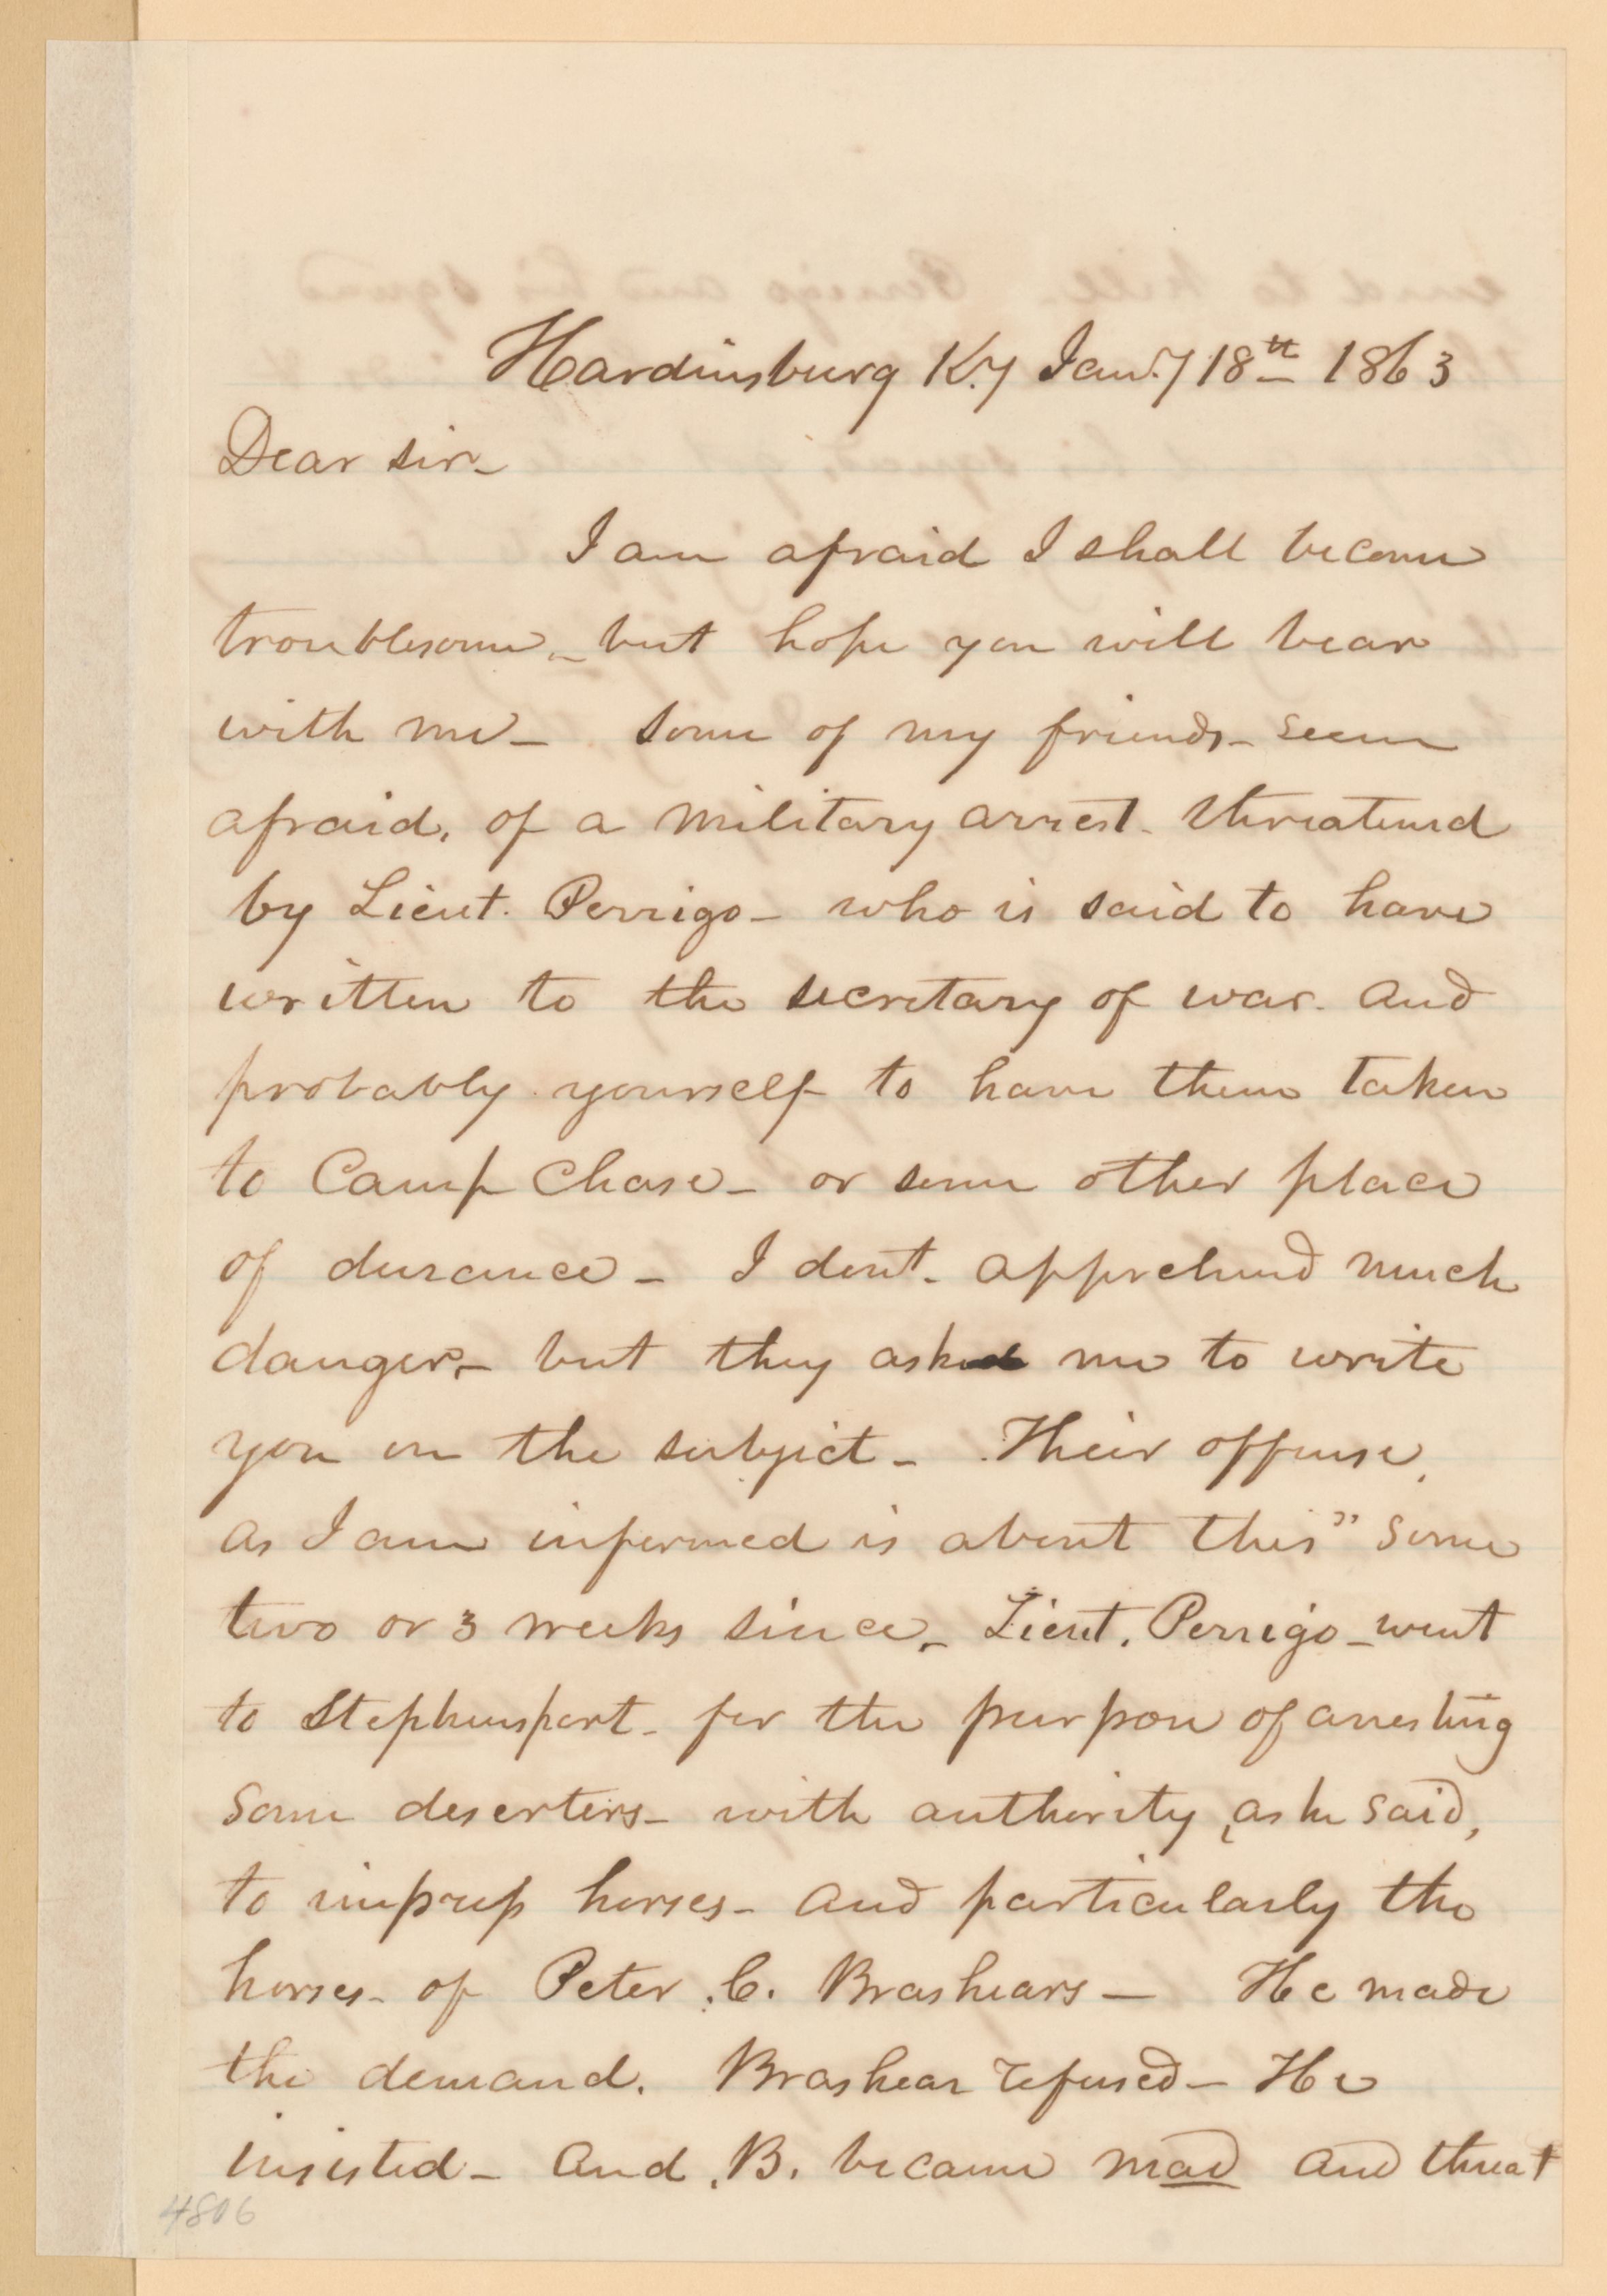 Hardinsburg Ky Jany 18th 1863
Dear sir—
I am afraid I shall become
troublesome — but hope you will bear
with me — some of my friends — seem
afraid, of a military arrest — threatened
by Lieut. Perrigo — who is said to have
written to the secretary of war. and
probably yourself to have them taken
to Camp Chase — or some other place
of durance — I dont — apprehend much
danger, — but they asked me to write
you on the subject — Their offense,
as I am informed is about this" Some
two or 3 weeks since, — Lieut. Perrigo — went
to Stephensport — for the purpose of arresting
some deserters — with authority, as he said,
to impress horses — and particularly the
horses — of Peter. C. Brashears — He made
the demand. Brashear refused — He
insisted — and B. became mad and threat
4806